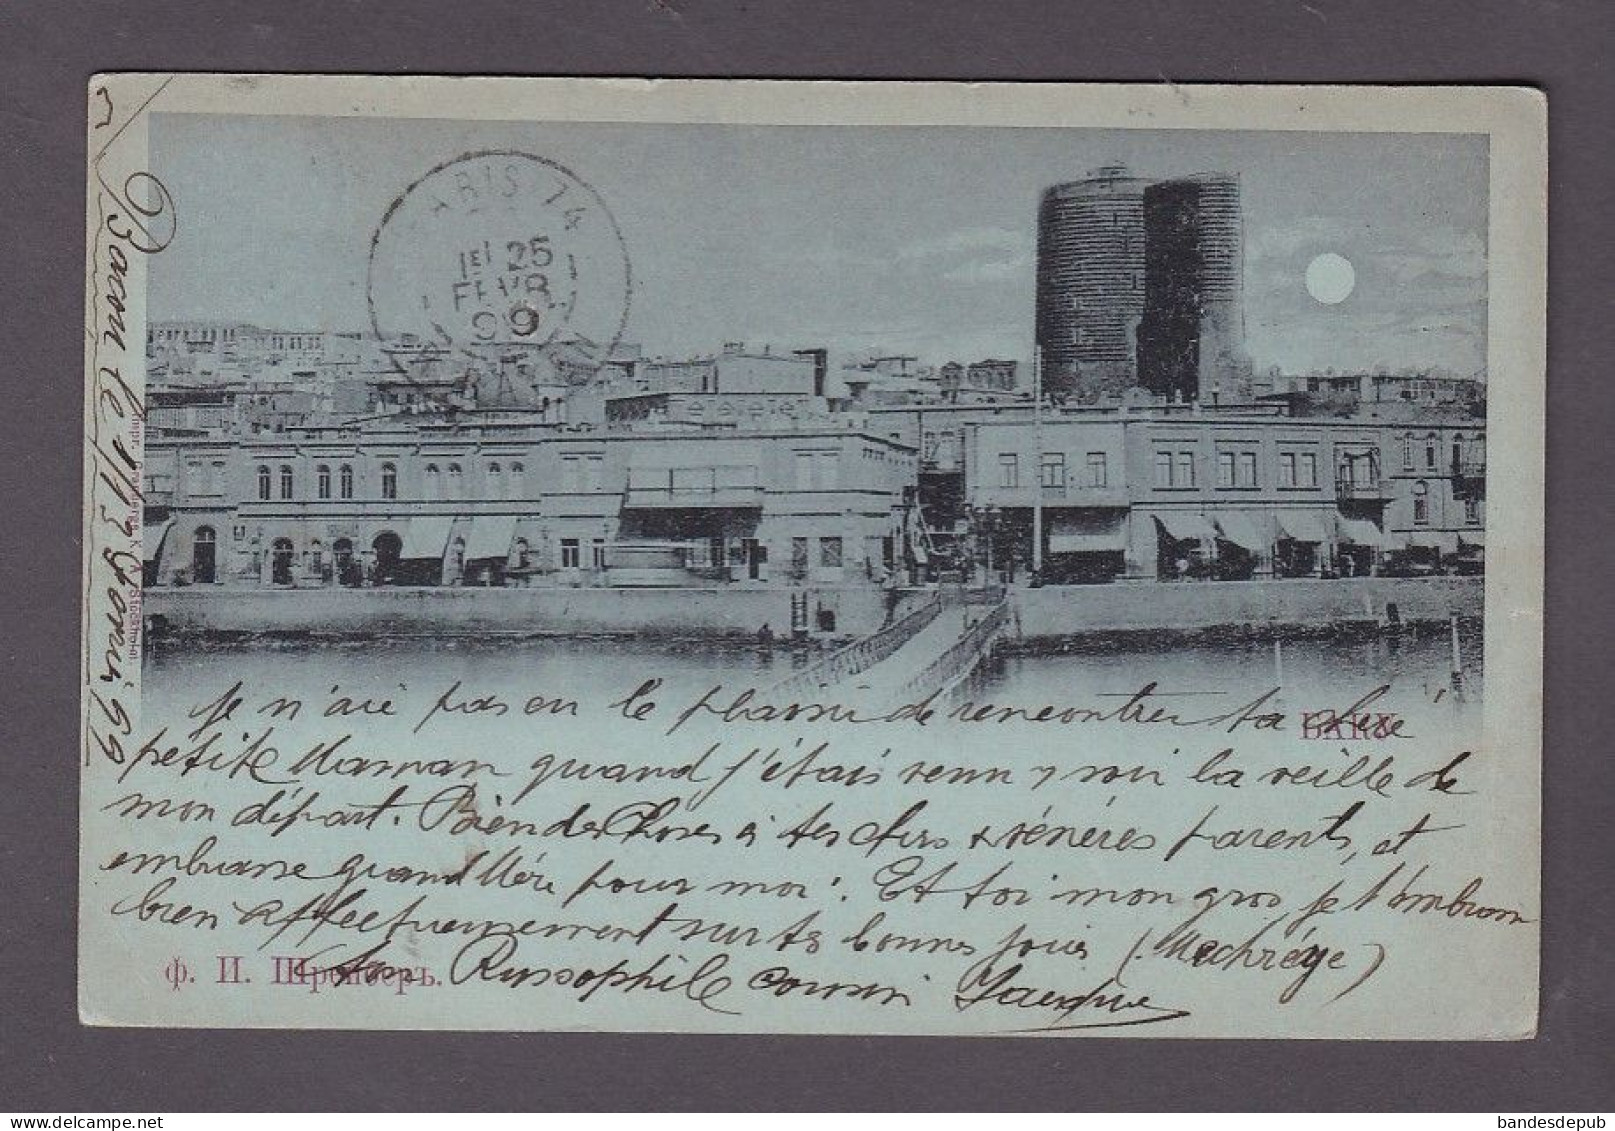 Bacou le 1/13 février 99
PARIS 74
1E/ 25
FEVR
99
Impr. Granbergs K. F:s Stockholm.
BAKU
Je n'ai pas eu le plaisir de rencontrer ta
petite Maman quand j'étais venu y voir la veille de
mon départ. Bien des choses à tes chers & vénérés parents, et
embrasse grand Mère pour moi. Et toi mon gros je t'embrasse
bien affectueusement sur tes bonnes joues
Ton Russophile cousin Jacques
Ф. И. Шрейберъ.
bandesdepub